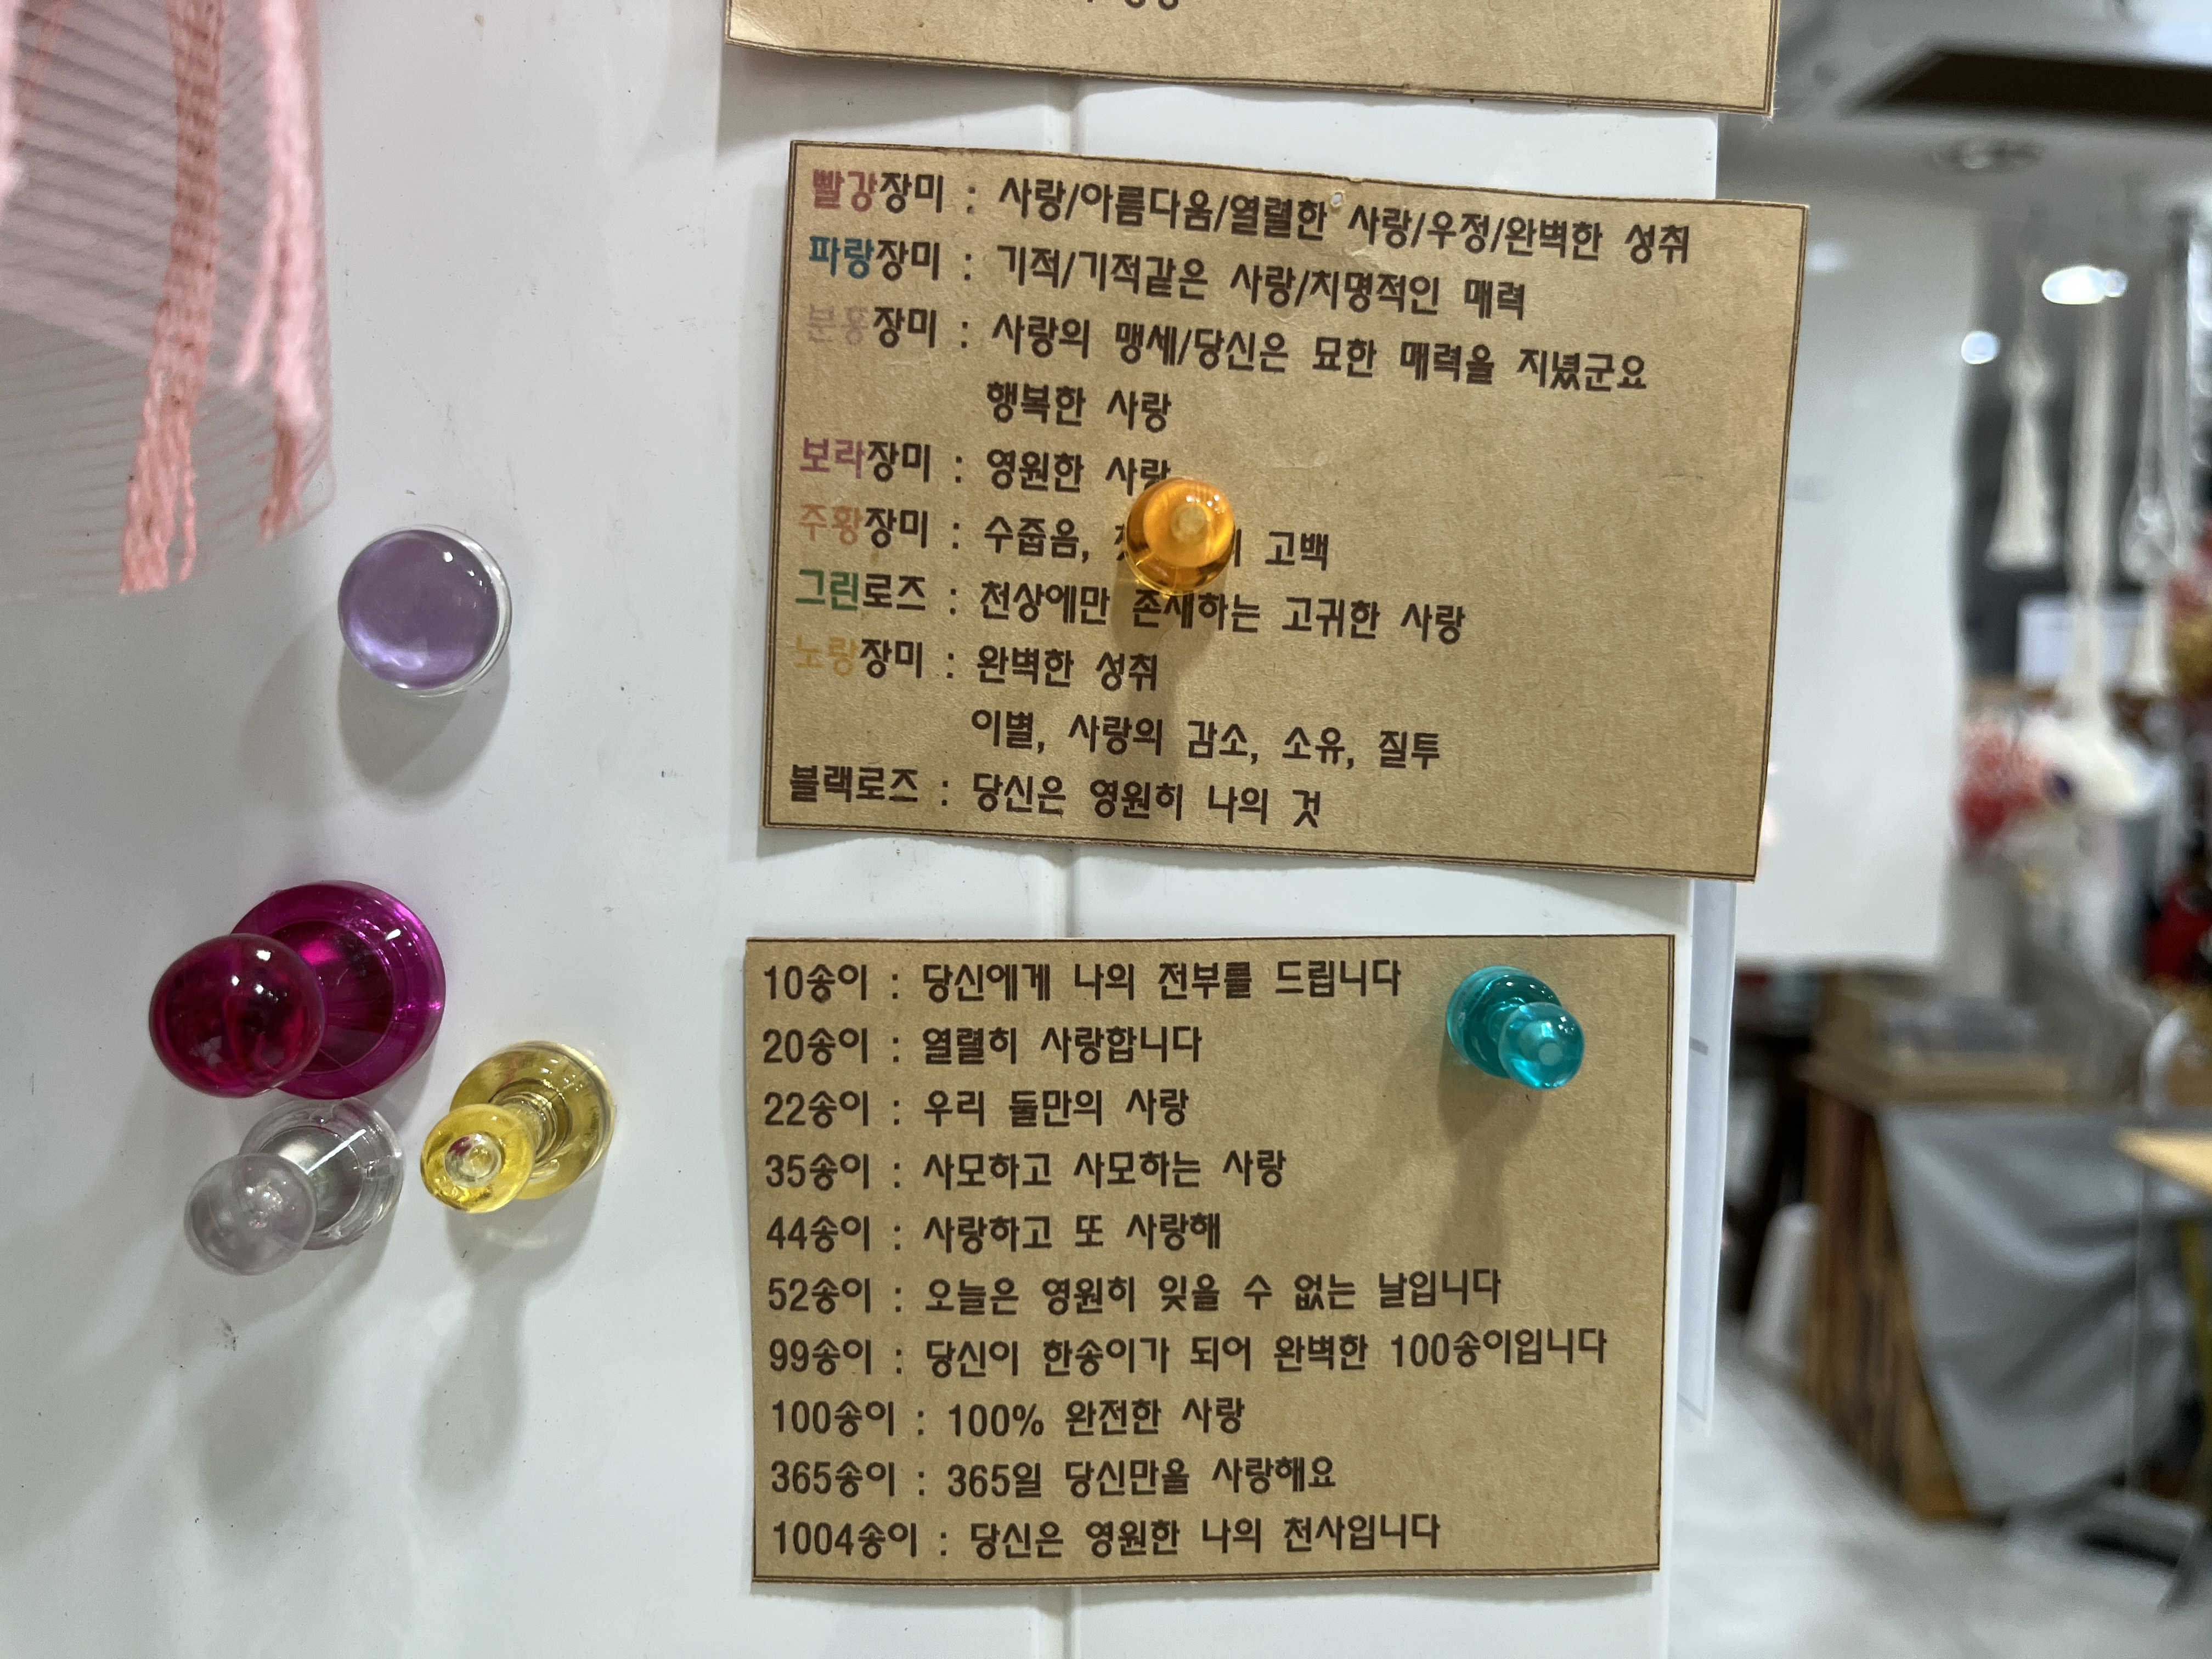 빨강장미 : 사랑/아름다움/열렬한 사랑/우정/완벽한 성취
파랑장미 : 기적/기적같은 사랑/치명적인 매력
분홍장미 : 사랑의 맹세/당신은 묘한 매력을 지녔군요
행복한 사랑
보라장미 : 영원한 사랑
주황장미 : 수줍음, 고백
그린로즈 : 천상에만 존재하는 고귀한 사랑
노랑장미 : 완벽한 성취
이별, 사랑의 감소, 소유, 질투
블랙로즈 : 당신은 영원히 나의 것
10송이 : 당신에게 나의 전부를 드립니다
20송이 : 열렬히 사랑합니다
22송이 : 우리 둘만의 사랑
35송이 : 사모하고 사모하는 사랑
44송이 : 사랑하고 또 사랑해
52송이 : 오늘은 영원히 잊을 수 없는 날입니다
99송이 : 당신이 한송이가 되어 완벽한 100송이입니다
100송이 : 100% 완전한 사랑
365송이 : 365일 당신만을 사랑해요
1004송이 : 당신은 영원한 나의 천사입니다